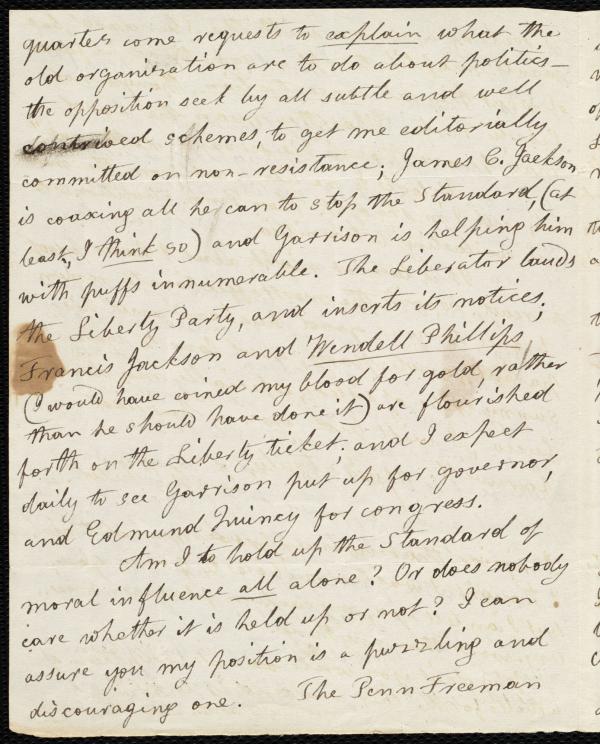 quarter come requests to explain what the
old organization are to do about politics —
the opposition seek by all subtle and well
contrived schemes, to get me editorially
committed on non-resistance; James C. Jackson
is coaxing all he can to stop the Standard, (at
least, I think so) and Garrison is helping him
with puffs innumerable. The Liberator lauds
the Liberty Party, and inserts its notices;
Francis Jackson and Wendell Phillips
(I would have coined my blood for gold, rather
than he should have done it) are flourished
forth on the Liberty ticket; and I expect
daily to see Garrison put up for governor,
and Edmund Quincy for congress.
Am I to hold up the Standard of
moral influence all alone? Or does nobody
care whether it is held up or not? I can
assure you my position is a puzzling and
discouraging one. The Penn Freeman